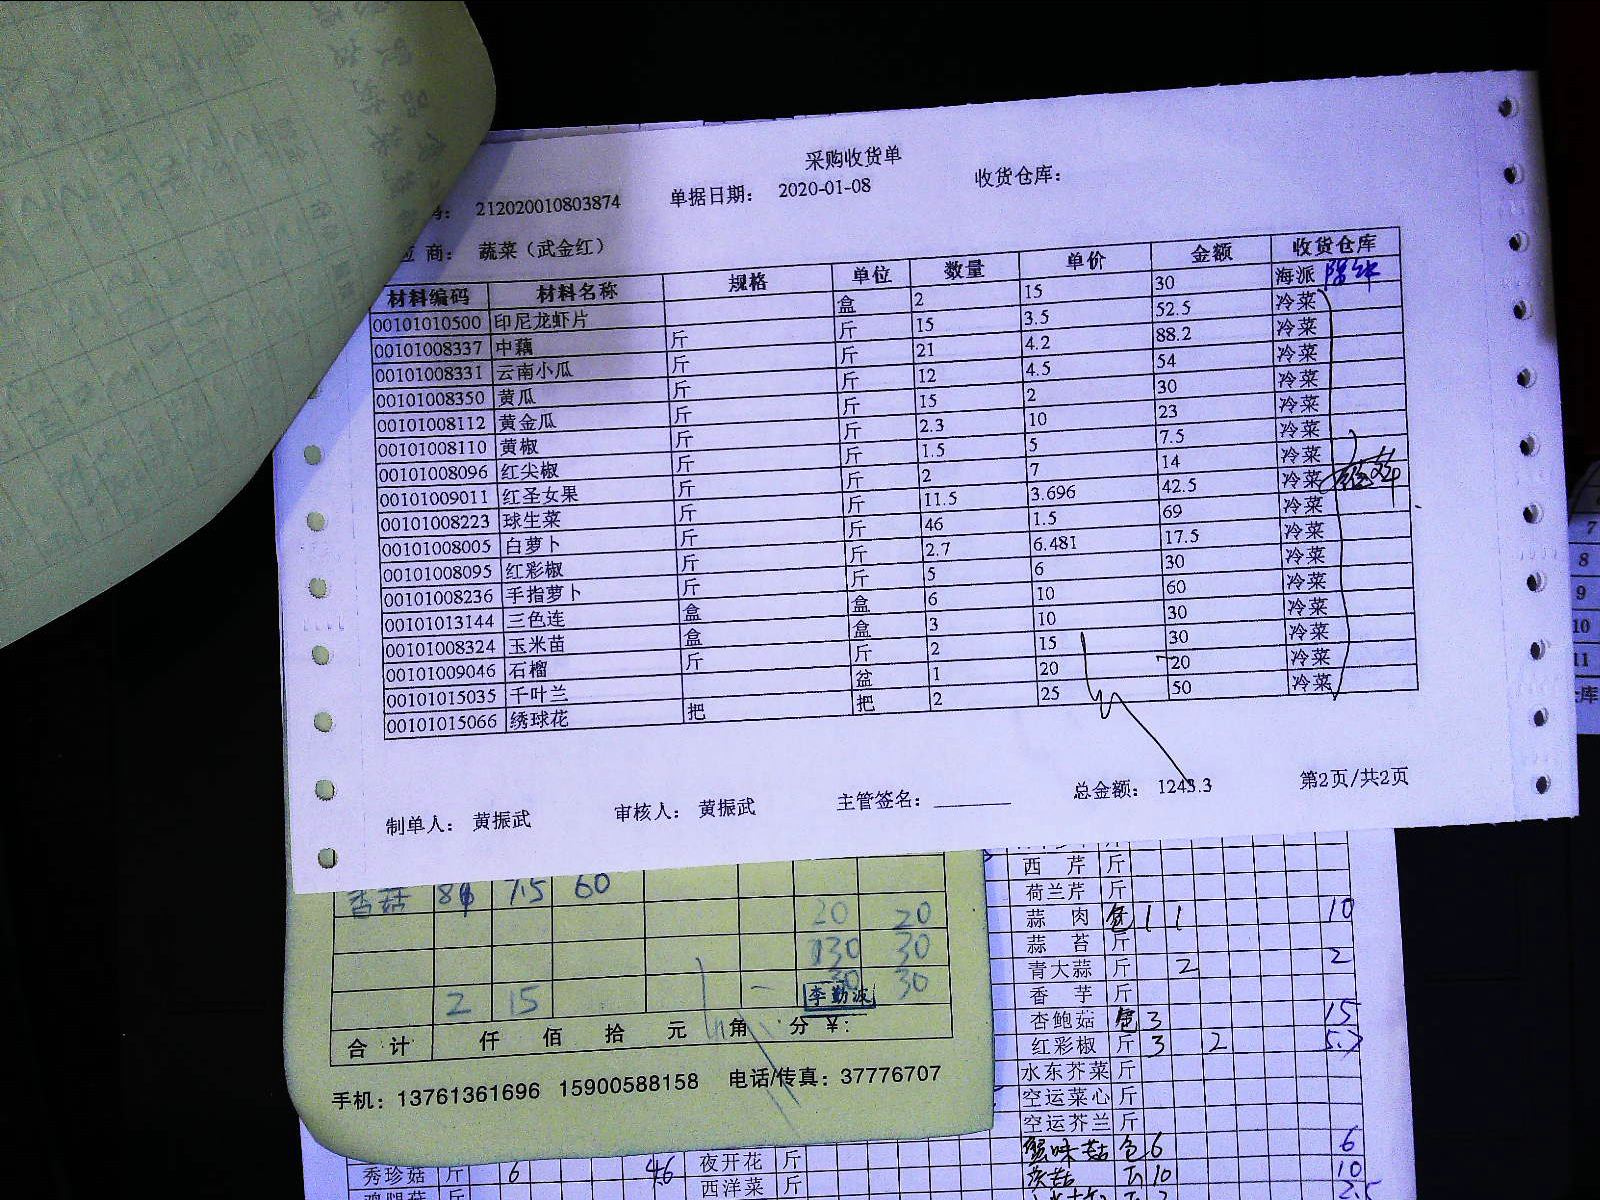 采购收货单
212020010803874 单据日期: 2020-01-08 收货仓库:
应 商: 蔬菜（武金红）
材料编码 材料名称 规格 单位 数量 单价 金额 收货仓库
00101010500 印尼龙虾片 盒 2 15 30 海派
00101008337 中藕 斤 斤 15 3.5 52.5 冷菜
00101008331 云南小瓜 斤 斤 21 4.2 88.2 冷菜
00101008350 黄瓜 斤 斤 12 4.5 54 冷菜
00101008112 黄金瓜 斤 斤 15 2 30 冷菜
00101008110 黄椒 斤 斤 2.3 10 23 冷菜
00101008096 红尖椒 斤 斤 1.5 5 7.5 冷菜
00101009011 红圣女果 斤 斤 2 7 14 冷菜
00101008223 球生菜 斤 斤 11.5 3.696 42.5 冷菜
00101008005 白萝卜 斤 斤 46 1.5 69 冷菜
00101008095 红彩椒 斤 斤 2.7 6.481 17.5 冷菜
00101008236 手指萝卜 斤 斤 5 6 30 冷菜
00101013144 三色连 盒 盒 6 10 60 冷菜
00101008324 玉米苗 盒 盒 3 10 30 冷菜
00101009046 石榴 斤 斤 2 15 30 冷菜
00101015035 千叶兰 盆 1 20 20 冷菜
00101015066 绣球花 把 把 2 25 50 冷菜
总金额: 1243.3 第2页/共2页
制单人: 黄振武 审核人: 黄振武 主管签名:
香菇 7.5 60
20 20
30 30
2 15 30 30
李勤波
合 计 仟 佰 拾 元 角 分 ￥:
手机: 13761361696 15900588158 电话/传真: 37776707
西 芹 斤
荷兰芹 斤
蒜 肉 包 1 1 10
蒜 苔 斤
青大蒜 斤 2 2
香 芋 斤
杏鲍菇 包 3 15
红彩椒 斤 3 2 5.7
水东芥菜 斤
空运菜心 斤
空运芥兰 斤
蟹味菇 包 6 6
秀珍菇 斤 6 4.6 夜开花 斤
10 10
鸡腿菇 斤 西洋菜 斤
7
8
9
10
11